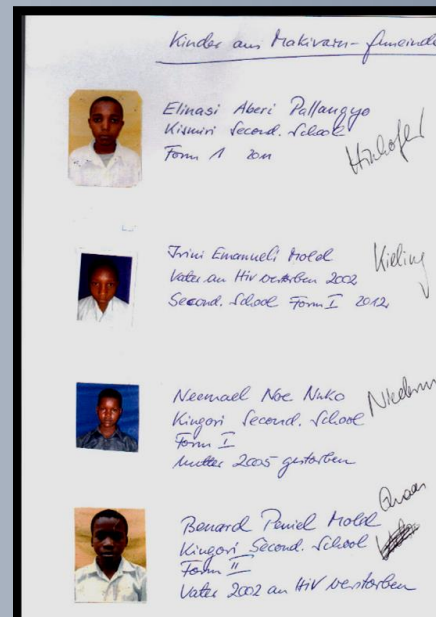 Kinder aus Makivaru-Gemeinde
Elinasi Aberi Pallangyo
Kismiri Second. School
Form 1 2011
Irini Emanueli Molel
Kieling
Vater an Hiv verstorben 2002
Second. School Form I 2012
Neemael Noe Nnko
Kingori Second. School
Form I
Mutter 2005 gestorben
Benard Peniel Molel
Kingori Second. School
Form II
Vater 2002 an HIV verstorben